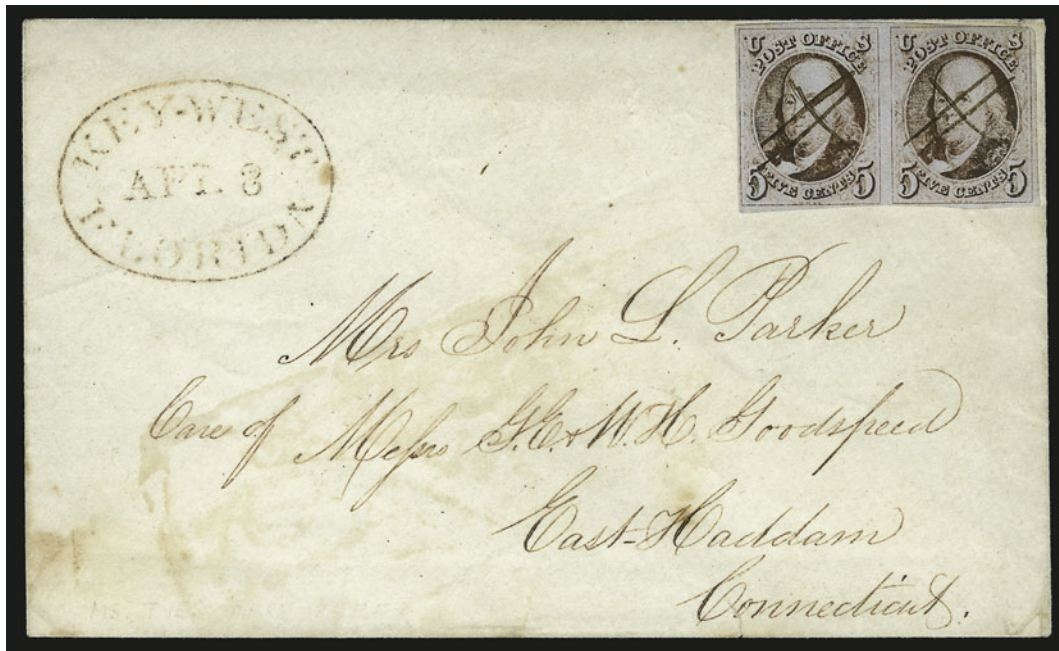 KEY-WEST
APL 3
FLORIDA
U S
POST OFFICE
5 5
FIVE CENTS
U S
POST OFFICE
5 5
FIVE CENTS
Mrs John L. Parker
Care of Messrs G.E. & W.H. Goodspeed
East-Haddam
Connecticut.